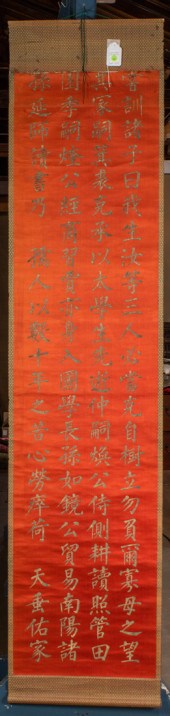 嘗訓諸子曰我生汝等三人必當克自樹立勿負爾寡母之望
其冢嗣箕裘克承以太學生先逝仲嗣煥公侍側耕讀照管田
園季嗣燧公經商習賈亦身入國學長孫如鏡公貿易南陽諸
孫延師讀書乃孺人以數十年之苦心勞瘁荷 天垂佑家